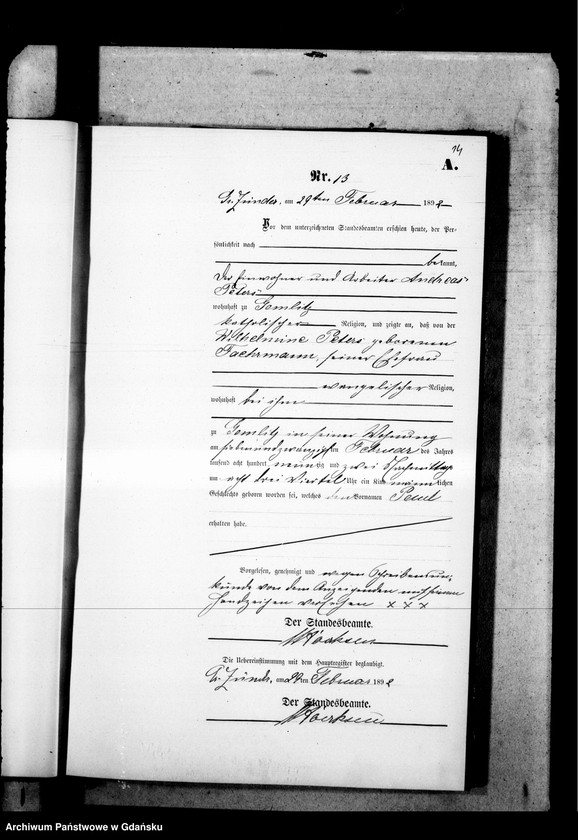 14
A.
Nr. 13
Gr. Zünder, am 29ten Februar 1892
Vor dem unterzeichneten Standesbeamten erschien heute, der Per-
sönlichkeit nach
bekannt,
der Einwohner und Arbeiter Andreas
Peters
wohnhaft zu Gemlitz
katholischer Religion, und zeigte an, daß von der
Wilhelmine Peters geborenen
Fachrmann, seiner Ehefrau
evangelischer Religion,
wohnhaft bei ihm
zu Gemlitz in seiner Wohnung
am siebenundzwanzigsten Februar des Jahres
tausend acht hundert neunzig und zwei Nachmittags
um acht drei Viertel Uhr ein Kind männlichen
Geschlechts geboren worden sei, welches den Vornamen Paul
erhalten habe.
Vorgelesen, genehmigt und wegen Schreibensun-
kunde von dem Anzeigenden mit seinem
Handzeichen versehen × × ×
Der Standesbeamte.
Die Uebereinstimmung mit dem Hauptregister beglaubigt.
Gr. Zünder, am 29ten Februar 1892
Der Standesbeamte.
Archiwum Państwowe w Gdańsku